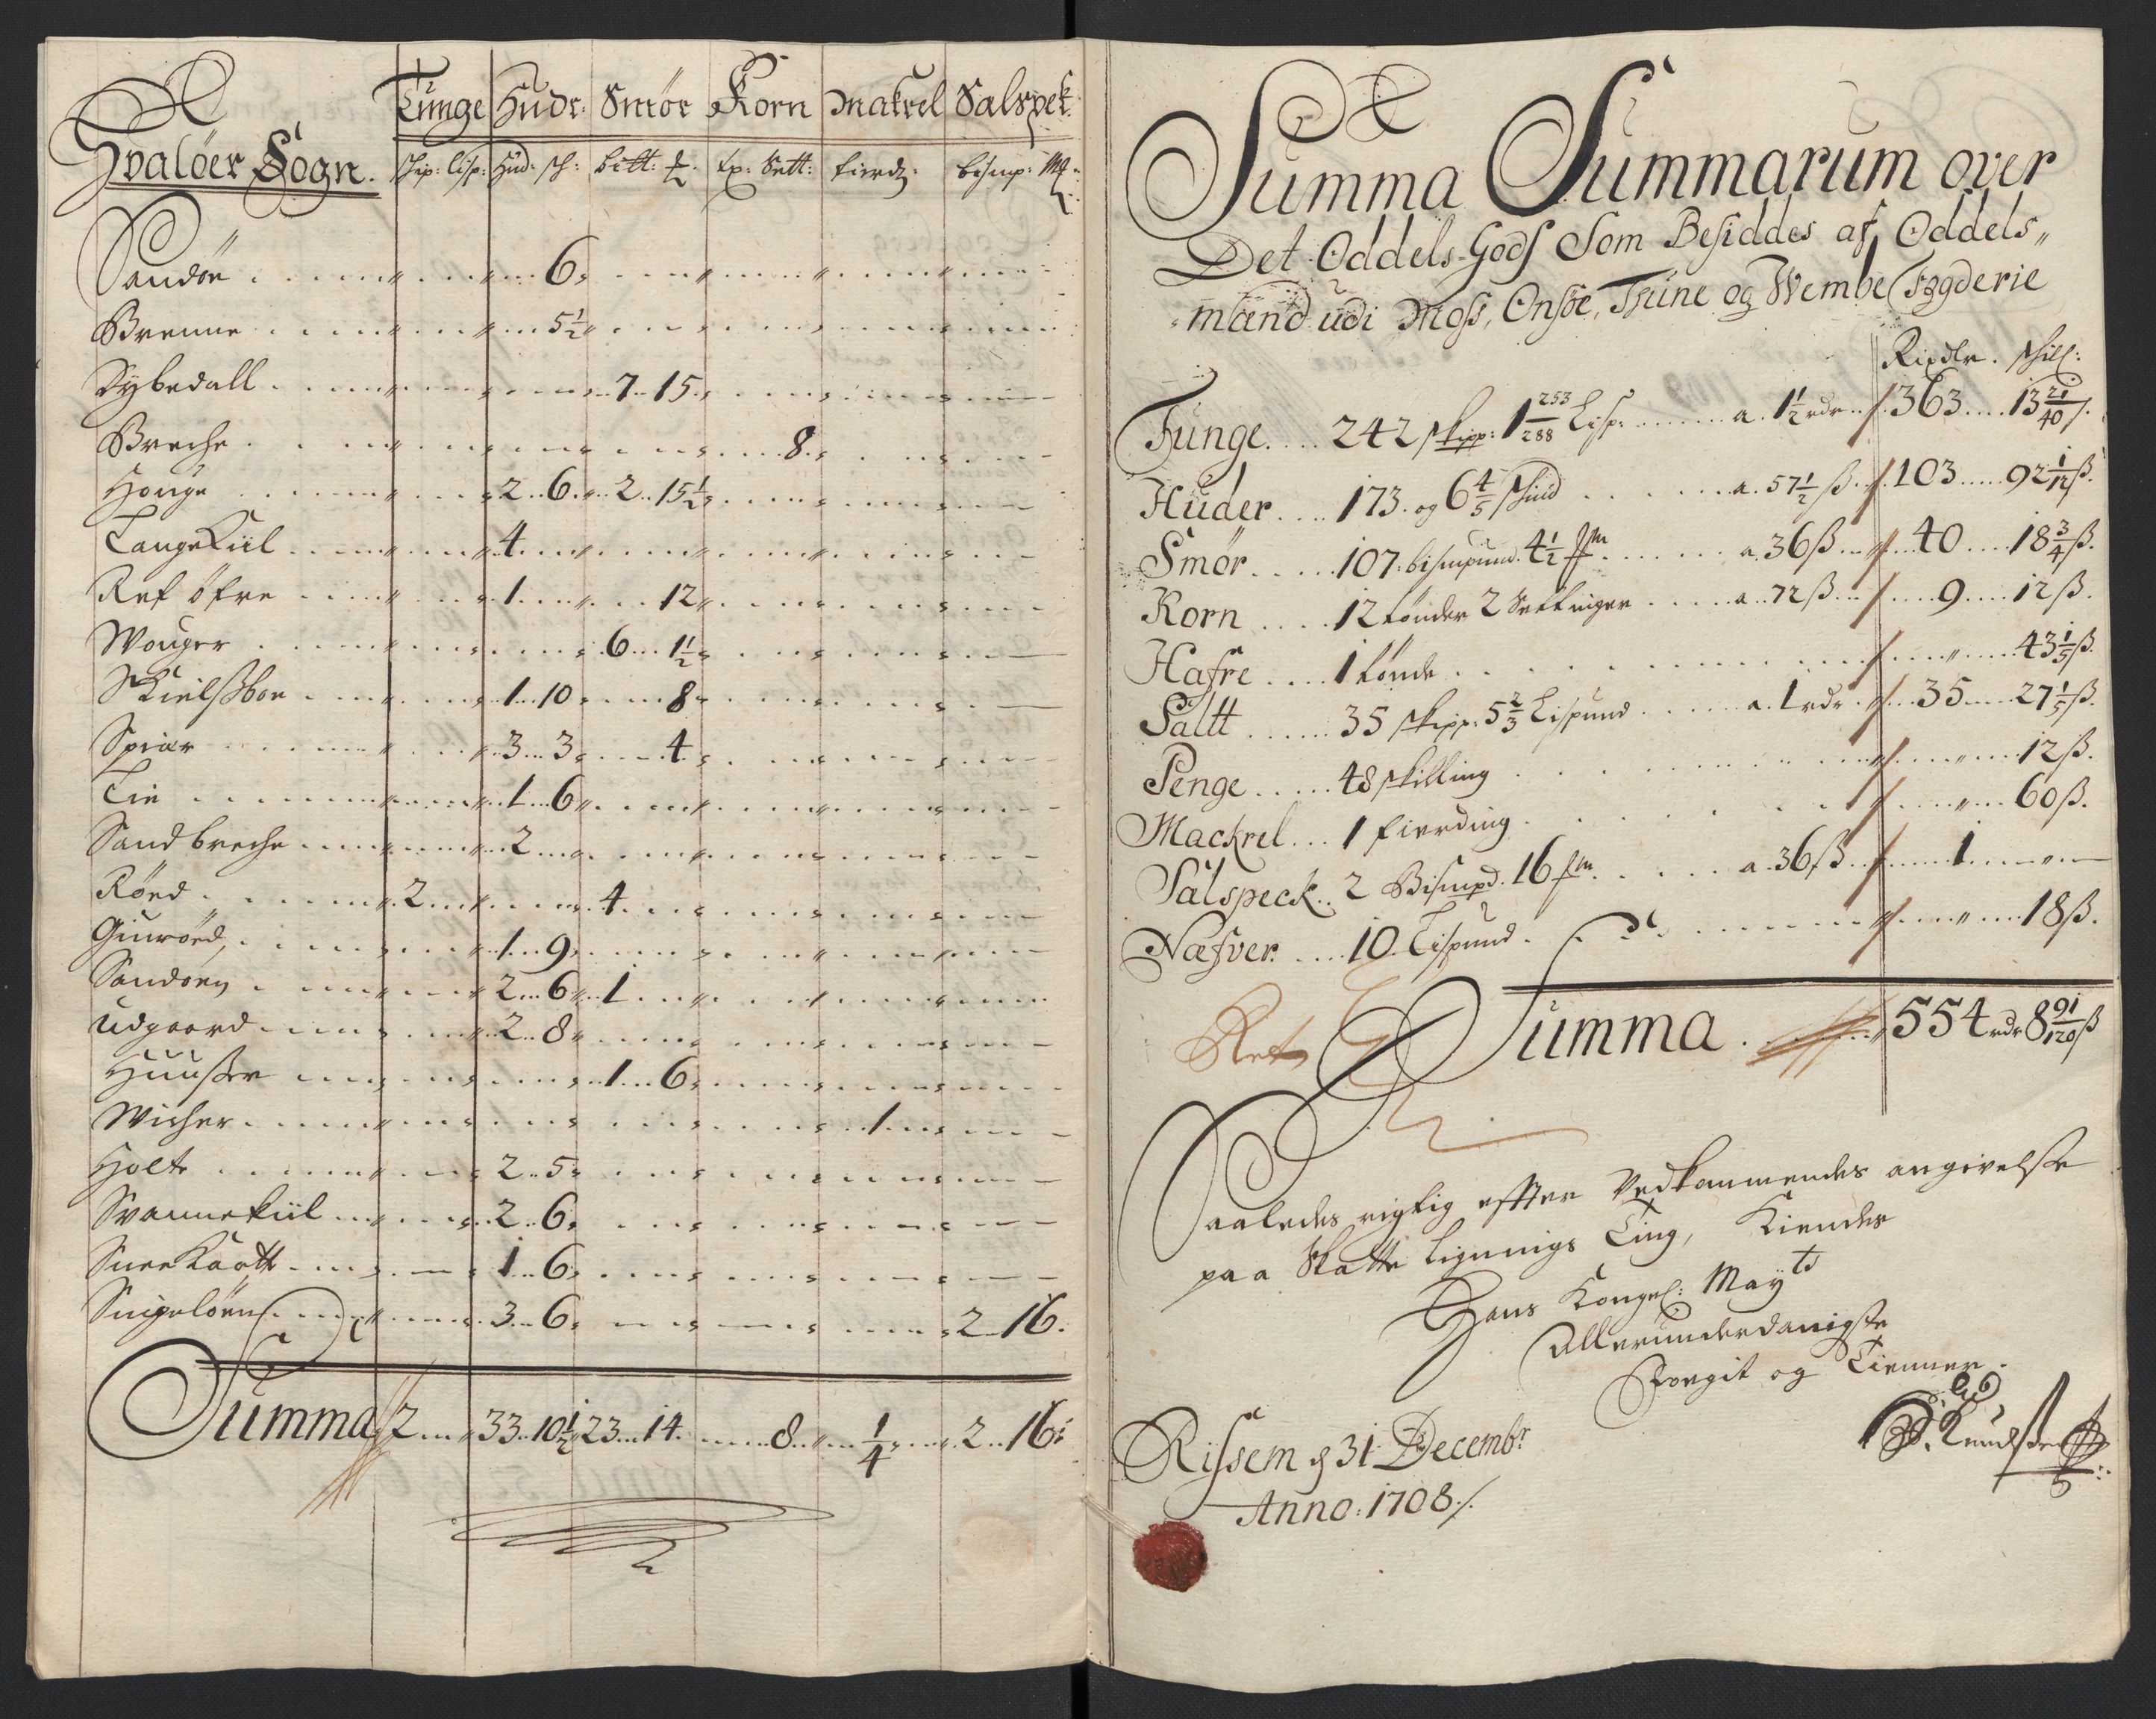 Tunge Huder: Smör Korn Makrel Salspek
Hvalöer Sogn. skip: lisp: Hud: sch: bitt: ℔ tp: Sett: fierdg: bismp: Mk
Sandöe 6
Brenne 5½
Dybedall 7 15
Breche 8
Houge 2 6 2 15½
TangeKiil 4
Ref öfre 1 12
Wouger 6 1½
Skielssboe 1 10 8
Spiær 3 3 4
Tie 1 6
Sandbreche 2
Röed 2 4
Giuröed 1 9
Sandöen 2 6 1
Udgaard 2 8
Huuser 1 6
Wicher 1
Holte 2 5
Svannekiil 2 6
SneeKaatt 1 6
Singelöen 3 6 2 16
Summa 2 33 10½ 23 14 8 ¼ 2 16
Summa Summarum over
Det Oddels-Gods Som Besiddes af Oddels„
mænd udi Moss, Onsöe, Thüne og Wembe Fogderie
Rixdlr. skill:
Tunge 242 skipp: 1 253/288 Lisp: a 1½ rdr 363 13 21/40 s
Huder 173 og 6⅘ skind a 57½ ß 103 92 1/12 ß
Smör 107 bismpund 4½ a 36 ß 40 18¾ ß
Korn 12 tönder 2 Settinger a 72 ß 9 12 ß
Hafre 1 tönde 43⅕ ß
Saltt 35 skipp: 5⅔ Lispund a 1 rdr 35 27⅕ ß
Penge 48 skilling 12 ß
Mackrel 1 fierding 60 ß
Salspeck 2 Bismpd. 16 a 36 ß 1
Næfver 10 Lispund 18 ß
Summa 554 rdr 8 91/120 ß
Saaledes rigtig effter Vedkommendes angivelsse
paa Skatte Lignings Ting, Kiendes
Hans Kongel: Mayts
Allerunderdanigste
Foegit og Tienner.
Rissem d 31 Decembr
Anno: 1708